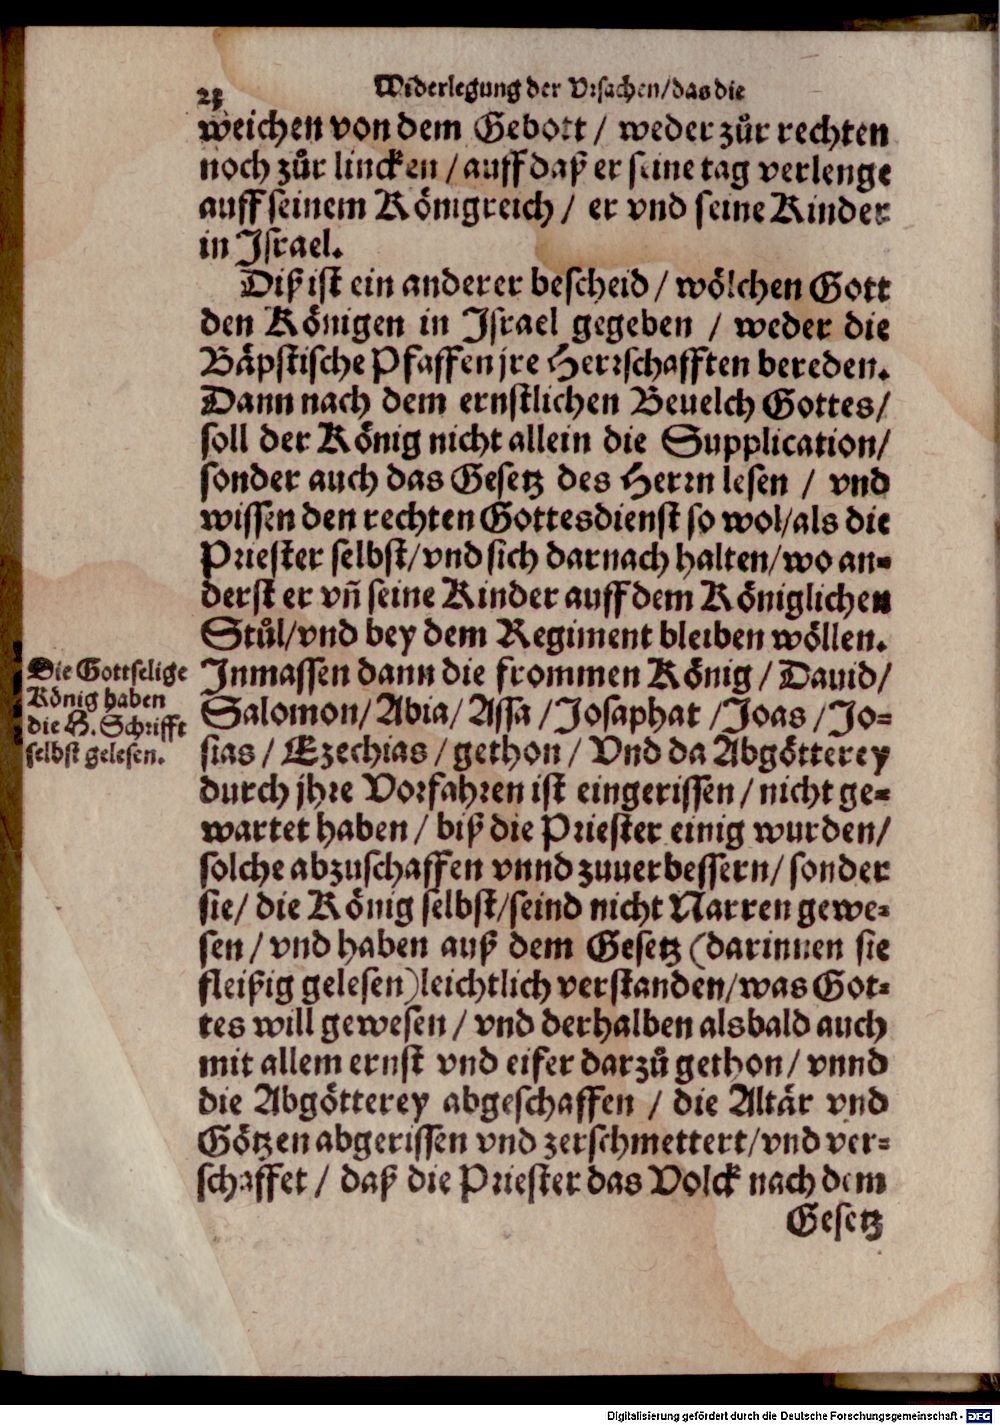 Widerlegung der Vrsachen/das die
weichen von dem Gebott / weder zůr rechten
noch zůr lincken / auff daß er seine tag verlenge
auff seinem Königreich / er vnd seine Kinder
in Israel.
Diß ist ein anderer bescheid / wölchen Gott
den Königen in Israel gegeben / weder die
Bäpstische Pfaffen jre Herrschafften bereden.
Dann nach dem ernstlichen Beuelch Gottes/
soll der König nicht allein die Supplication/
sonder auch das Gesetz des Herrn lesen / vnd
wissen den rechten Gottesdienst so wol/als die
Priester selbst/vnd sich darnach halten/wo an-
derst er vñ seine Kinder auff dem Königlichen
Stůl/vnd bey dem Regiment bleiben wöllen.
Die Gottselige
König haben
die H. Schrifft
selbst gelesen.
Inmassen dann die frommen König / Dauid/
Salomon/ Abia/ Assa /Josaphat /Joas /Jo-
sias / Ezechias / gethon / Vnd da Abgötterey
durch jhre Vorfahren ist eingerissen / nicht ge-
wartet haben / biß die Priester einig wurden/
solche abzuschaffen vnnd zuuerbessern/ sonder
sie/ die König selbst/seind nicht Narren gewe-
sen / vnd haben auß dem Gesetz (darinnen sie
fleißig gelesen)leichtlich verstanden/was Got-
tes will gewesen / vnd derhalben alsbald auch
mit allem ernst vnd eifer darzů gethon / vnnd
die Abgötterey abgeschaffen / die Altär vnd
Götzen abgerissen vnd zerschmettert/vnd ver-
schaffet / daß die Priester das Volck nach dem
Gesetz
Digitalisierung gefördert durch die Deutsche Forschungsgemeinschaft - DFG